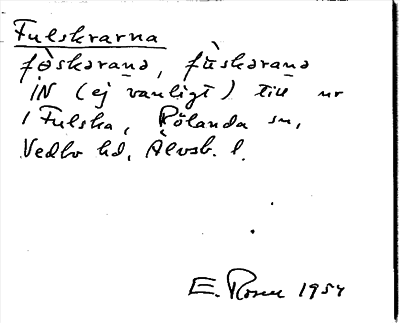 Fulskrarna
fɵ̀skərana, fùskərana
IN (ej vanligt) till nr
1 Fulska, Rölanda sn,
Vedbo hd, Älvsb. l.
E. Rosen 1954